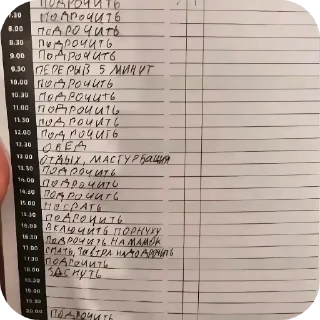 ПОДРОЧИТЬ
7.30 ПОДРОЧИТЬ
8.00 ПОДРОЧИТЬ
8.30 ПОДРОЧИТЬ
9.00 ПОДРОЧИТЬ
9.30 ПЕРЕРЫВ 5 МИНУТ
10.00 ПОДРОЧИТЬ
10.30 ПОДРОЧИТЬ
11.00 ПОДРОЧИТЬ
11.30 ПОДРОЧИТЬ
12.00 ПОДРОЧИТЬ
12.30 ОБЕД
13.00 ОТДЫХ, МАСТУРБАЦИЯ
13.30 ПОДРОЧИТЬ
14.00 ПОДРОЧИТЬ
14.30 ПОДРОЧИТЬ
15.00 ПОСРАТЬ
15.30 ПОДРОЧИТЬ
16.00 ВКЛЮЧИТЬ ПОРНУХУ
16.30 ПОДРОЧИТЬ НА МАМОК
17.00 СПАТЬ, ЗАВТРА НАДО ДРОЧИТЬ
17.30 ПОДРОЧИТЬ
18.00 ЗАСНУТЬ
18.30
19.00
19.30
20.00 ПОДРОЧИТЬ